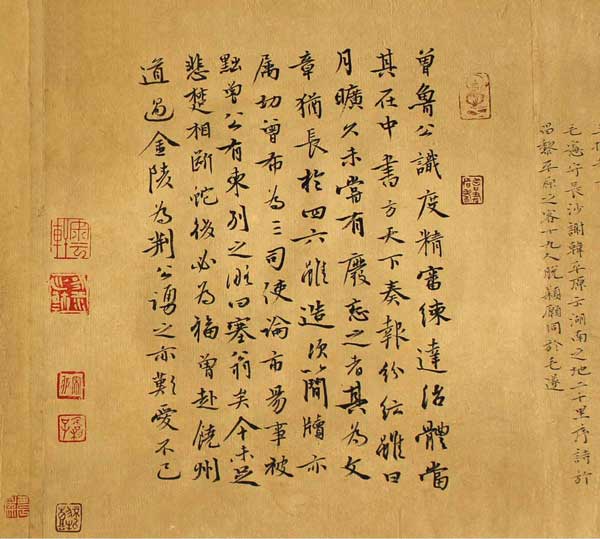 毛憲守長沙謝韓平原云湖南之地二千里序詩於
昌黎平原之客十九人脫穎願同於毛遂
曾魯公識度精審練達治體當
其在中書方天下奏報紛紜雖日
月曠久未嘗有廢忘之者其為文
章猶長於四六雖造次簡牘亦
属切曾布為三司使論市易事被
黜曾公有柬別之略曰塞翁失今未足
悲楚相断蛇後必為福曾赴饒州
道過金陵為荊公誦之亦歎愛不已